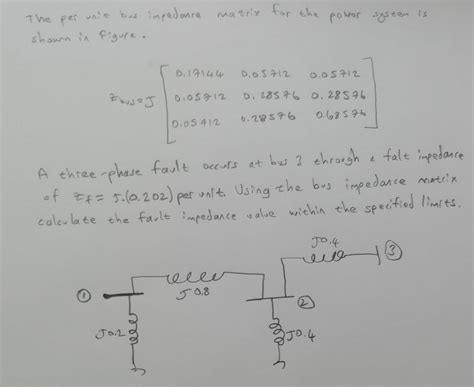 The per unit bus impedance matrix for the power system is
shown in Figure.
Zbus=J
0.17144 0.05712 0.05712
0.05712 0.28576 0.28576
0.05412 0.28576 0.68576
A three-phase fault occurs at bus 3 through a falt impedance
of Zf= J.(0.202) per unit. Using the bus impedance matrix
calculate the fault impedance value within the specified limits.
J0.4
3
1
J0.8
2
J0.2
J0.4